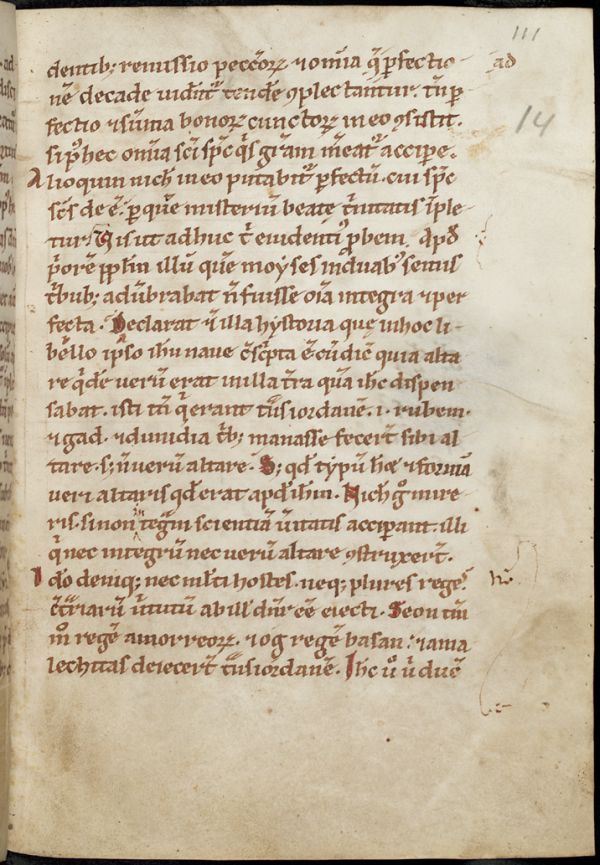 111
dentib; remissio pecco̅rꝝ ⁊ om̅ia q̅ p̲fectio
ad
ne̅ decade uident̅ tende̅ ꝯplectantur. tn̅ p̲
fectio ⁊ su̅ma bonorꝝ cunctorꝝ in eo ꝯsistit.
14
si p̾ hec om̅ia sc̅i sp̅c q̅s gr̅am m̅eat̅ accipe̅.
Alioquin nich̅ in eo putabit̅ p̲fectu̅. cui sp̅c
sc̅s de e̅. p̲ que̅ misteriu̅ beate t̅nitatis i̅ple
tur. Uis ut adhuc t̅ euidenti̾ p̲bem. Apd̅
p̾ore̅ pp̅lm illu̅ que̅ moyses in duab̾ semis
t̅bub; adu̅brabat n̅ fuisse oi̅a integra ⁊ per
fecta. Declarat ⁊ illa hystoria que in hoc li
bello ipso ih̅u naue e̅sc̅pta e̅ cu̅ dic̅e quia alta
re q̅de̅ ueru̅ erat in illa t̅ra qua̅ ih̅c dispen
sabat. isti tn̅ q̅ erant t̅ns iordane̅. i. ruben.
⁊ gad. ⁊ dimidia t̅b; manasse fecer̅t sibi al
tare. s; n̅ ueru̅ altare. S; qd̅ typu̅ h̅e ⁊ forma̅
ueri altaris qd̅ erat apd̅ ih̅m. Nich̅ g̊ mire
ris. si non i̅teg̅m scientia̅ u̅itatis accipiant. illi
q̅ nec integru̅ nec ueru̅ altare ꝯstruxer̅t.
Ido deniq; nec ml̅ti hostes. neq; plures rege̅s
ab ill' dn̅r e̅e eiecti. Seon tm̅
m̊ rege̅ amorreorꝝ. ⁊ og rege̅ basan. ⁊ ama
lechitas deiecer̅t t̅ns iordane̅. Ih̅c ů